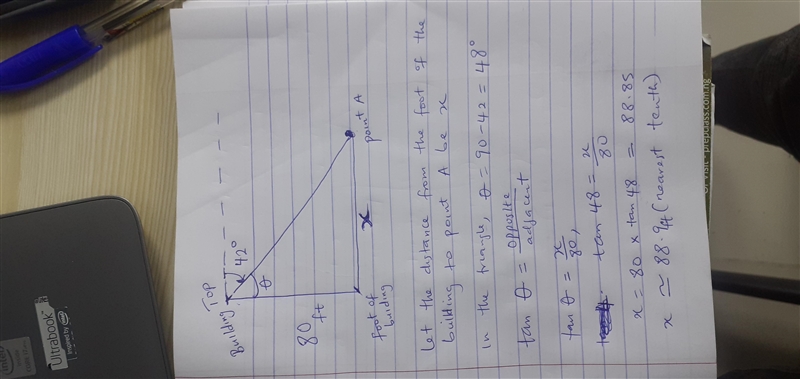 Building Top
42°
θ
80 ft
x
foot of
building
point A
Let the distance from the foot of the
building to point A be x
In the triangle, θ = 90 - 42 = 48°
tan θ = opposite / adjacent
tan θ = x/80,
tan 48 = x/80
x = 80 × tan 48 = 88.85
x ≃ 88.9ft (nearest tenth)
Ultrabook™
inspired by
intel